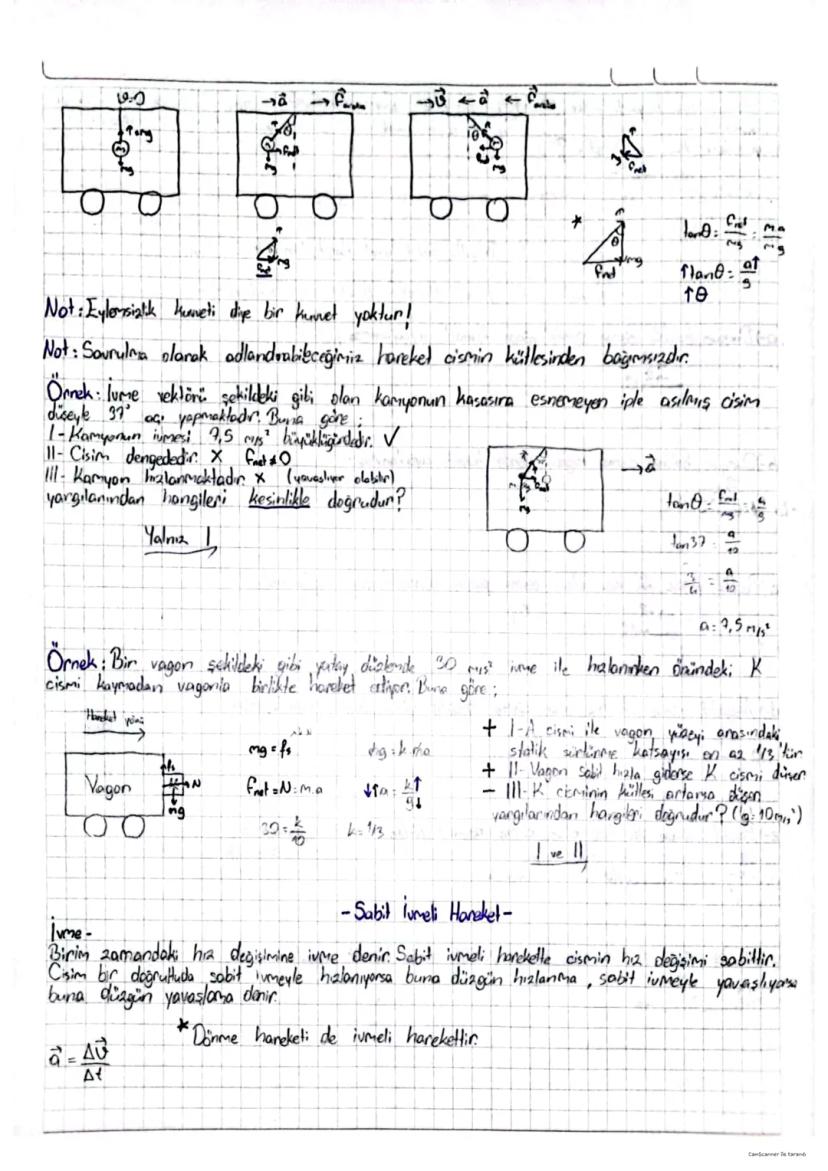 →a⃗ → F⃗araba
→ϑ⃗ ←a⃗ ← F⃗araba
mg
θ
Fnet
mg
θ
mg
Fnet
mg
Fnet
* θ mg Fnet
tanθ = Fnet/mg = ma/mg
↑tanθ = a↑/g
↑θ
Not: Eylemsizlik kuvveti diye bir kuvvet yoktur!
Not: Savrulma olarak adlandırabileceğimiz hareket cismin kütlesinden bağımsızdır.
Örnek: İvme vektörü şekildeki gibi olan kamyonun kasasına esnemeyen iple asılmış cisim
düşeyle 37° açı yapmaktadır. Buna göre;
I- Kamyonun ivmesi 7,5 m/s² büyüklüğündedir. ✓
II- Cisim dengededir. X Fnet≠0
III- Kamyon hızlanmaktadır. X (yavaşlıyor olabilir)
yargılarından hangileri kesinlikle doğrudur?
Yalnız I
→a⃗
mg
tanθ = Fnet/mg = a/g
tan37 = a/10
3/4 = a/10
a = 7,5 m/s²
Örnek: Bir vagon şekildeki gibi yatay düzlemde 30 m/s² ivme ile hızlanırken önündeki K
cismi kaymadan vagonla birlikte hareket ediyor. Buna göre;
Hareket yönü
Vagon
fs
N
mg
mg = fs
Fnet = N = m.a
30 = k/10
mg = k ma
↓↑a = k↑/g↓
k = 1/3
+ I- A cismi ile vagon yüzeyi arasındaki
statik sürtünme katsayısı en az 1/3 'tür
+ II- Vagon sabit hızla giderse K cismi düşer
- III- K cisminin kütlesi artarsa düşer
yargılarından hangileri doğrudur? (g: 10m/s²)
I ve II
- Sabit İvmeli Hareket -
İvme -
Birim zamandaki hız değişimine ivme denir. Sabit ivmeli harekette cismin hız değişimi sabittir.
Cisim bir doğrultuda sabit ivmeyle hızlanıyorsa buna düzgün hızlanma, sabit ivmeyle yavaşlıyorsa
buna düzgün yavaşlama denir.
* Dönme hareketi de ivmeli harekettir.
a⃗ = Δϑ⃗/Δt
CamScanner ile tarandı